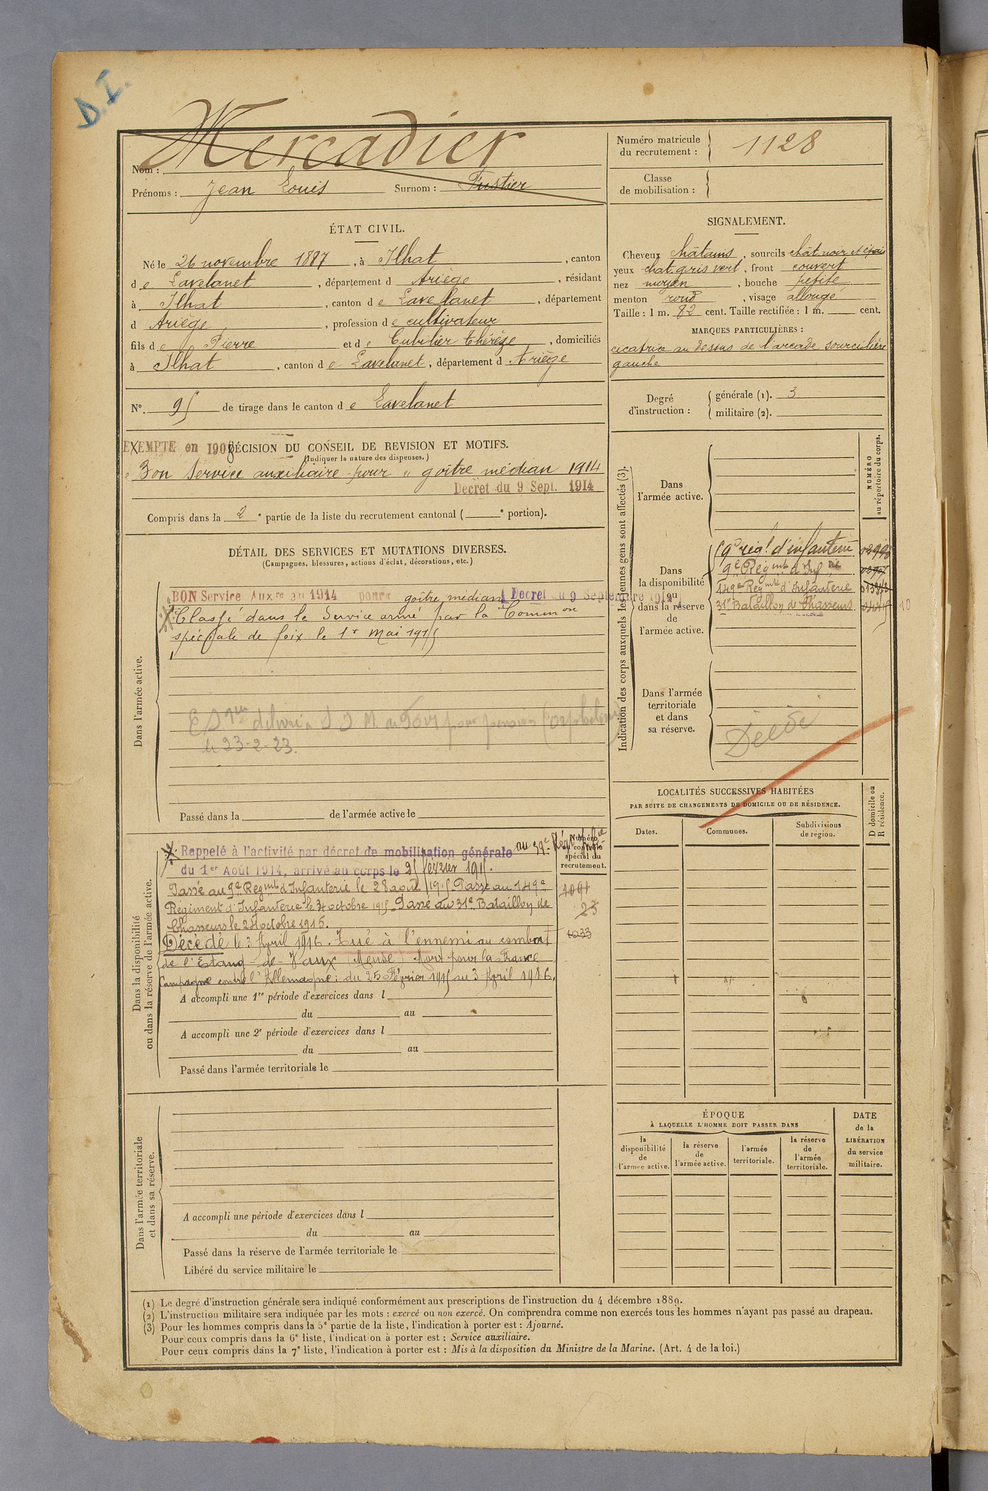 D.I.
Mercadier
Nom :
Prénoms : Jean Louis Surnom : Fustier
Numéro matricule
du recrutement : 1128
Classe
de mobilisation :
ÉTAT CIVIL.
Né le 26 novembre 1887, à Ilhat, canton
de Lavelanet, département d Ariège, résidant
à Ilhat, canton de Lavelanet, département
d Ariège, profession de cultivateur
fils de Pierre et de Cubilier Thérèze, domiciliés
à Ilhat, canton de Lavelanet, département d Ariège
N°. 95 de tirage dans le canton de Lavelanet
SIGNALEMENT.
Cheveux châtains, sourcils chât noir et épais
yeux chat gris vert, front couvert
nez moyen, bouche petite
menton rond, visage allongé
Taille : 1 m. 82 cent. Taille rectifiée : 1 m. cent.
MARQUES PARTICULIÈRES :
cicatrice au dessus de l'arcade sourcilière
gauche
Degré
d'instruction :
générale (1). 3
militaire (2).
EXEMPTÉ en 1908 DÉCISION DU CONSEIL DE REVISION ET MOTIFS.
(Indiquer la nature des dispenses.)
Bon Service auxiliaire pour " goitre médian 1914
Décret du 9 Sept. 1914
Compris dans la 2e partie de la liste du recrutement cantonal ( e portion).
DÉTAIL DES SERVICES ET MUTATIONS DIVERSES.
(Campagnes, blessures, actions d'éclat, décorations, etc.)
Dans l'armée active.
BON Service Auxre en 1914 pour goitre médian Décret du 9 Septembre 1914
Classé dans le Service armé par la Common
spéciale de foix le 1er mai 1915
le 23-2-23.
Passé dans la de l'armée active le
Indication des corps auxquels les jeunes gens sont affectés (3).
NUMÉRO
au répertoire du corps.
Dans
l'armée active.
Dans
la disponibilité
ou
dans la réserve
de
l'armée active.
59e régt d'infanterie
9e Régmt d'Inf rie
149e Régmt d'Infanterie
31e Bataillon de Chasseurs
Dans l'armée
territoriale
et dans
sa réserve.
Décédé
Dans la disponibilité
ou dans la réserve de l'armée active.
Rappelé à l'activité par décret de mobilisation générale au 59e Régt d'Inf
du 1er Août 1914, arrivé au corps le 25 février 1915.
Passé au 9e Régmt d'Infanterie le 28 août 1915 Passé au 149e
Régiment d'Infanterie le 4 octobre 1915 Passé au 31e Bataillon de
Chasseurs le 20 octobre 1915.
Décédé le 3 Avril 1916. Tué à l'ennemi au combat
de l'Etang de Vaux Meuse Mort pour la France
Campagne contre l'Allemagne : du 25 Février 1915 au 3 Avril 1916.
Numéro
au contrôle
spécial du
recrutement.
23
1033
A accompli une 1re période d'exercices dans l
du au
A accompli une 2e période d'exercices dans l
du au
Passé dans l'armée territoriale le
LOCALITÉS SUCCESSIVES HABITÉES
PAR SUITE DE CHANGEMENTS DE DOMICILE OU DE RÉSIDENCE.
Dates.
Communes.
Subdivisions
de région.
D domicile ou
R résidence.
Dans l'armée territoriale
et dans sa réserve.
A accompli une période d'exercices dans l
du au
Passé dans la réserve de l'armée territoriale le
Libéré du service militaire le
ÉPOQUE
À LAQUELLE L'HOMME DOIT PASSER DANS
la
disponibilité
de
l'armée active.
la réserve
de
l'armée active.
l'armée
territoriale.
la réserve
de
l'armée
territoriale.
DATE
de la
LIBÉRATION
du service
militaire.
(1) Le degré d'instruction générale sera indiqué conformément aux prescriptions de l'instruction du 4 décembre 1889.
(2) L'instruction militaire sera indiquée par les mots : exercé ou non exercé. On comprendra comme non exercés tous les hommes n'ayant pas passé au drapeau.
(3) Pour les hommes compris dans la 5e partie de la liste, l'indication à porter est : Ajourné.
Pour ceux compris dans la 6e liste, l'indication à porter est : Service auxiliaire.
Pour ceux compris dans la 7e liste, l'indication à porter est : Mis à la disposition du Ministre de la Marine. (Art. 4 de la loi.)